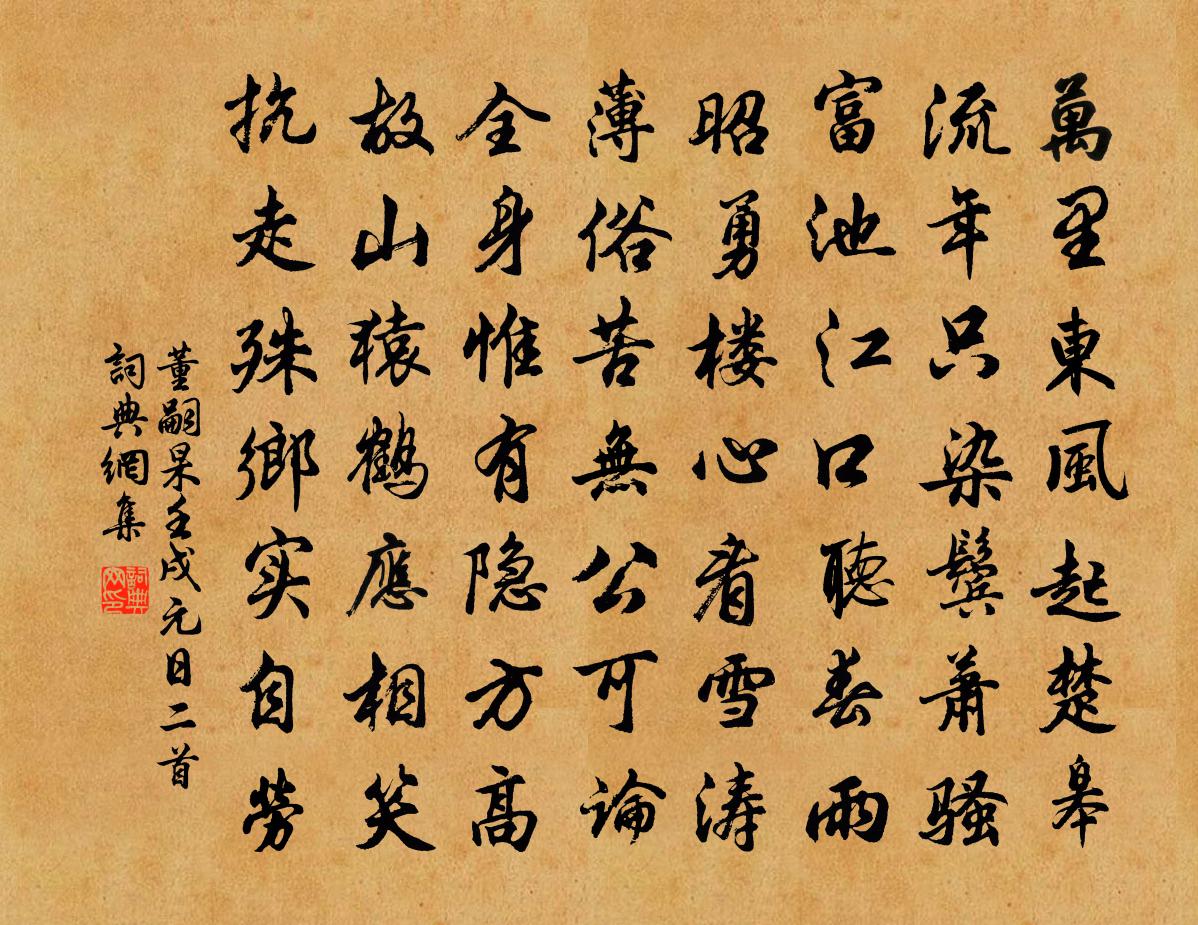 萬里東風起楚皋
流年只染鬓蕭骚
富池江口聽春雨
昭勇楼心看雪涛
薄俗苦無公可論
全身惟有隐方高
故山猿鶴應相笑
抗走殊鄉实自勞
董嗣杲壬戌元日二首
詞典網集
詞典网印